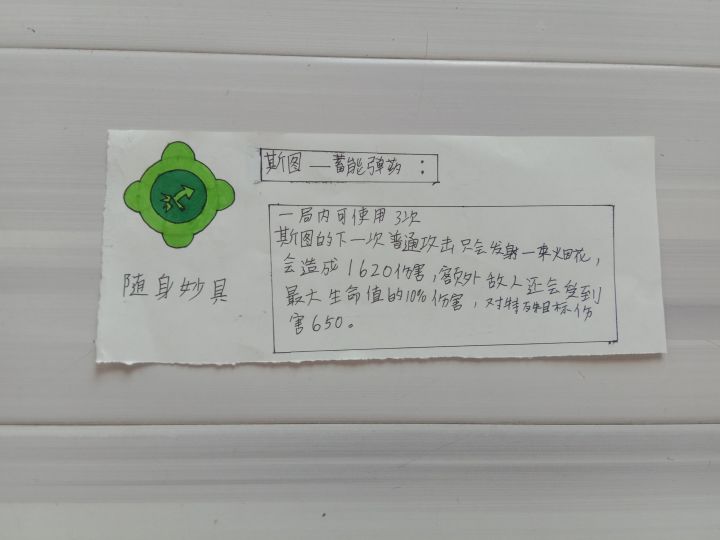 斯图 — 蓄能弹药：
一局内可使用 3次
斯图的下一次普通攻击只会发射一束烟花，
会造成1620伤害，额外敌人还会受到
最大生命值的10%伤害，对特殊目标伤
害650。
随身妙具